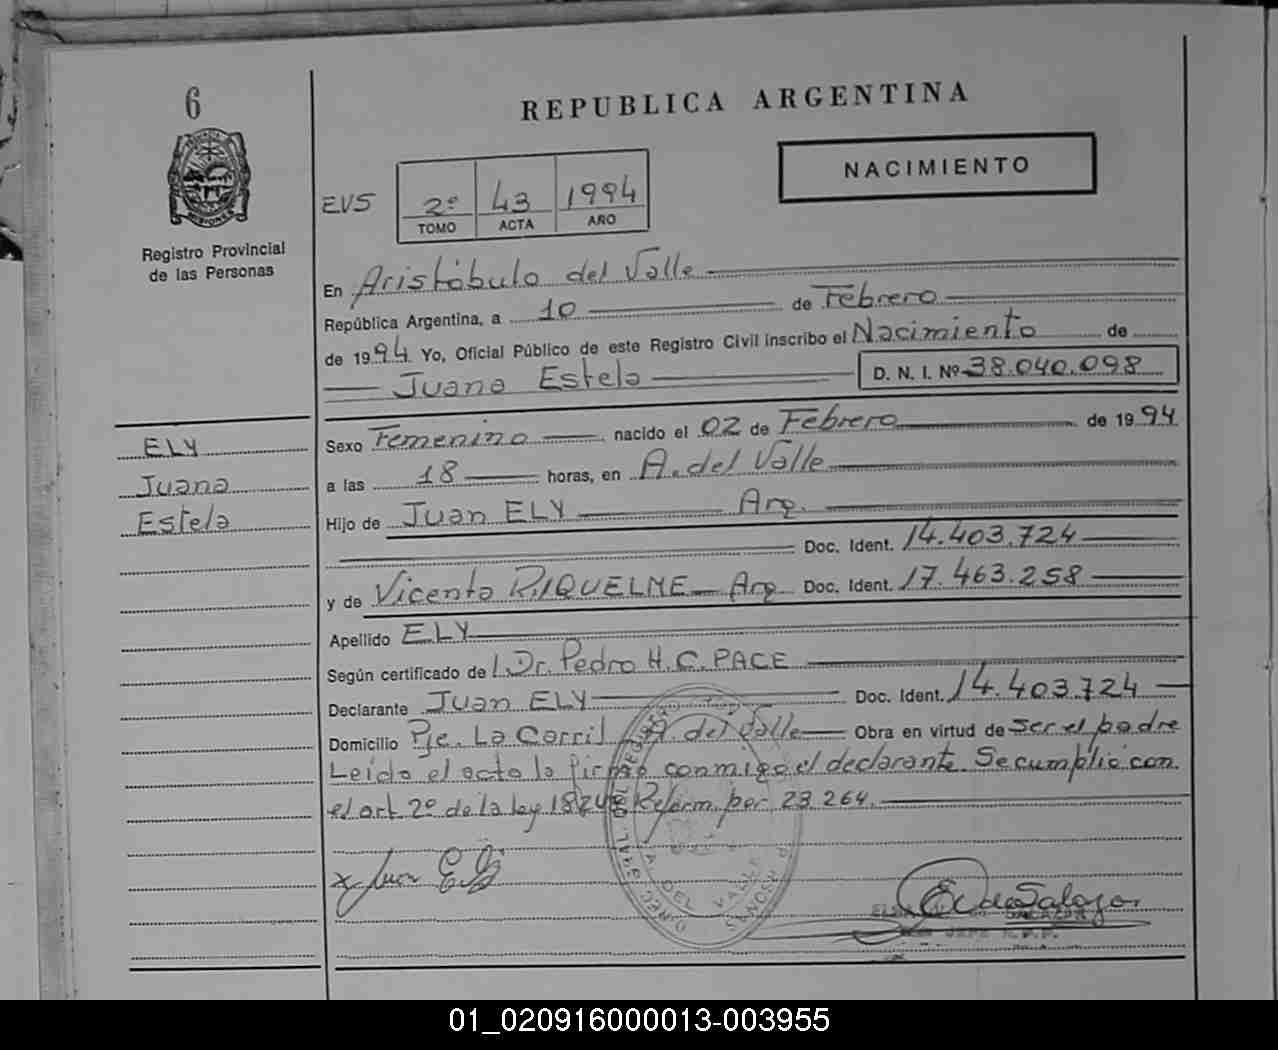 6
REPUBLICA ARGENTINA
NACIMIENTO
PROVINCIA
MISIONES
Registro Provincial
de las Personas
EVS
2º 43 1994
TOMO ACTA AÑO
En Aristóbulo del Valle
República Argentina, a 10 de Febrero
de 1994 Yo, Oficial Público de este Registro Civil inscribo el Nacimiento de
Juana Estela D. N. I. Nº 38.040.098
ELY
Juana
Estela
Sexo Femenino nacido el 02 de Febrero de 1994
a las 18 horas, en A. del Valle
Hijo de Juan ELY Arg.
Doc. Ident. 14.403.724
y de Vicenta RIQUELME Arg Doc. Ident. 17.463.258
Apellido ELY
Según certificado de Dr. Pedro H. C. PACE
Declarante Juan ELY Doc. Ident. 14.403.724
Domicilio Pje. La Corril A. del Valle Obra en virtud de ser el padre
Leída el acta la firma conmigo el declarante. Se cumplió con
el art 2º de la ley 18248 Reform. por 23.264.
x Juan Ely
A. DEL VALLE
E. de Salazar
SALAZAR
JEFE R.P.P.
01_020916000013-003955